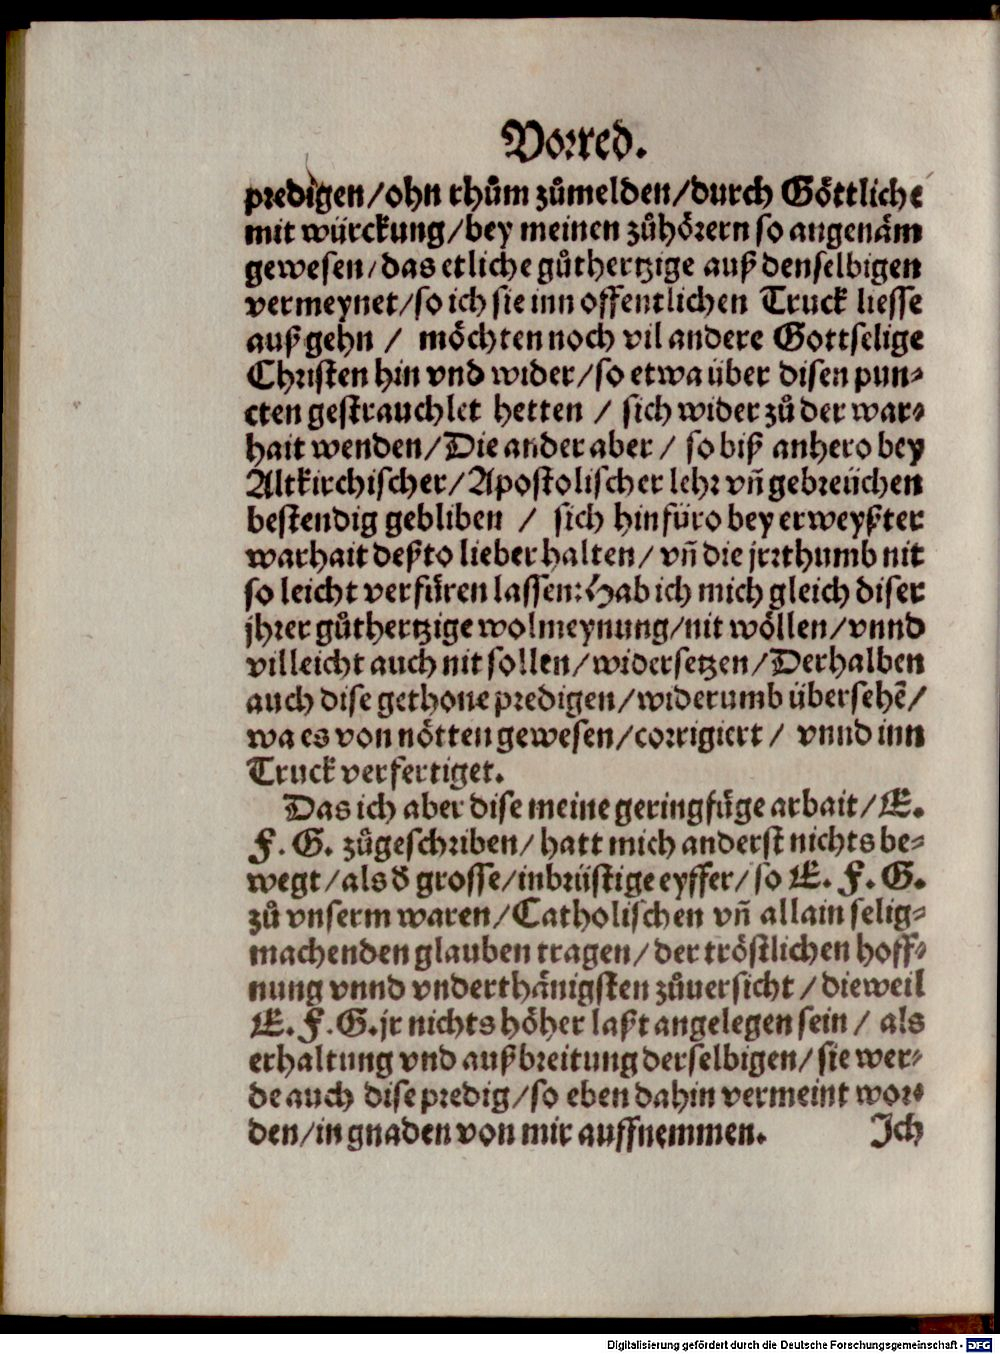 Vorred.
predigen/ohn rhům zůmelden/durch Göttliche
mit würckung/bey meinen zůhörern so angenäm
gewesen/das etliche gůthertzige auß denselbigen
vermeynet/so ich sie inn offentlichen Truck liesse
auß gehn / möchten noch vil andere Gottselige
Christen hin vnd wider/so etwa über disen pun-
cten gestrauchlet hetten / sich wider zů der war-
hait wenden/Die ander aber / so biß anhero bey
Altkirchischer/Apostolischer lehr vñ gebreüchen
bestendig gebliben / sich hinfüro bey erweyßter
warhait deßto lieber halten/ vñ die jrrthumb nit
so leicht verfüren lassen: Hab ich mich gleich diser
jhrer gůthertzige wolmeynung/nit wöllen/vnnd
villeicht auch nit sollen/widersetzen/Derhalben
auch dise gethone predigen/widerumb übersehẽ/
wa es von nötten gewesen/corrigiert / vnnd inn
Truck verfertiget.
Das ich aber dise meine geringfüge arbait/E.
F. G. zůgeschriben/ hatt mich anderst nichts be-
wegt/als d̕ grosse/inbrüstige eyffer/so E. F. G.
zů vnserm waren/Catholischen vñ allain selig-
machenden glauben tragen/der tröstlichen hoff-
nung vnnd vnderthänigsten zůuersicht /dieweil
E. F. G. jr nichts höher laßt angelegen sein / als
erhaltung vnd außbreitung derselbigen/sie wer-
de auch dise predig/so eben dahin vermeint wor-
den/in gnaden von mir auffnemmen. Ich
Digitalisierung gefördert durch die Deutsche Forschungsgemeinschaft - DFG